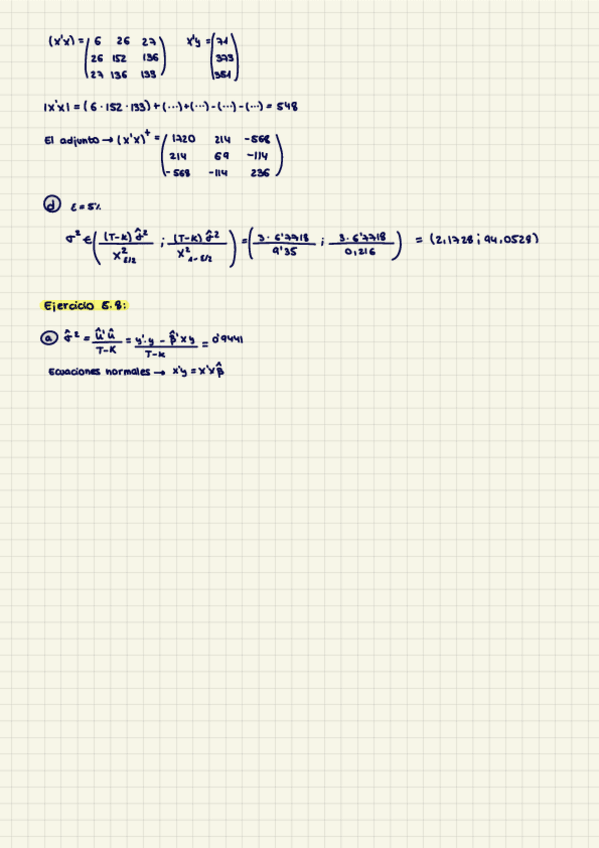 (x'x) = ( 6 26 27 ) x'y = ( 71 )
26 152 136 373
27 136 133 351
|x'x| = (6 · 152 · 133) + (...) + (...) - (...) - (...) = 548
El adjunto → (x'x)⁺ = ( 1720 214 -568 )
214 69 -114
-568 -114 236
d ε = 5%
σ² ∈ ( (T-K) σ̂² / χ²ε/2 ; (T-K) σ̂² / χ²1-ε/2 ) = ( 3 · 6'7718 / 9'35 ; 3 · 6'7718 / 0,216 ) = (2,1728 ; 94,0528)
Ejercicio 5.8:
a σ̂² = û'û / T-K = y'·y - β̂'xy / T-K = 0'9441
Ecuaciones normales → x'y = x'xβ̂